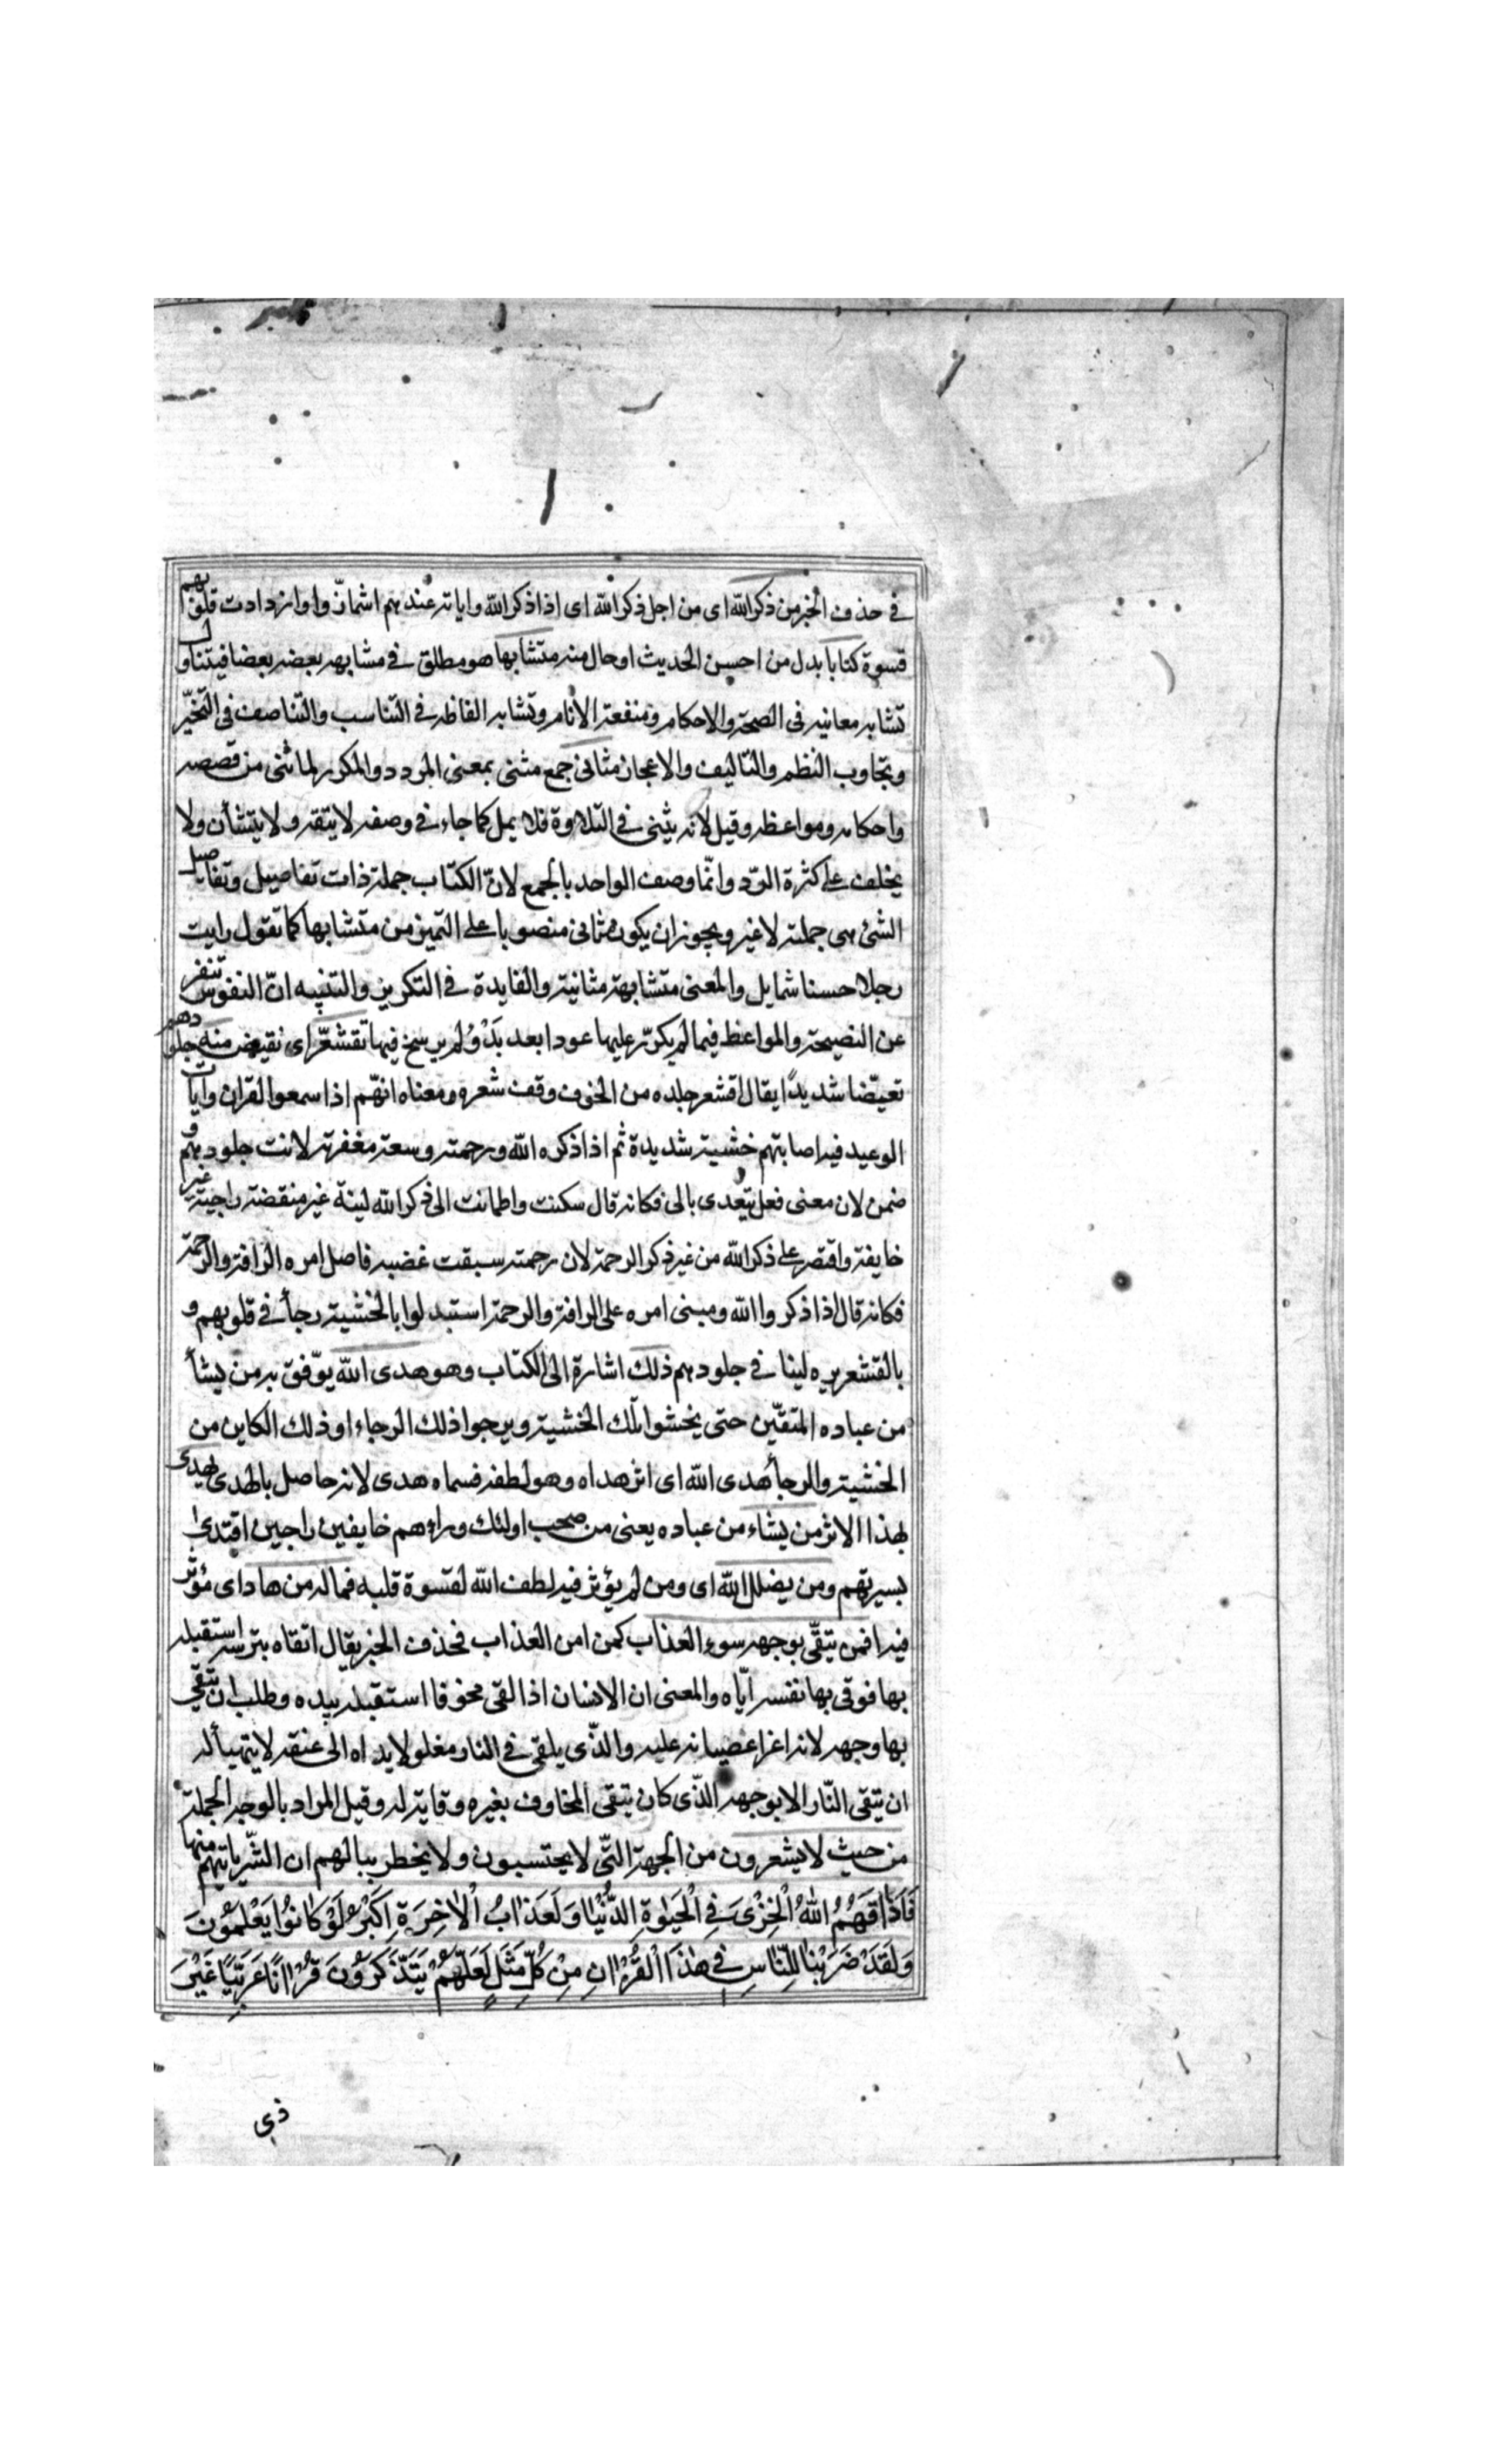 في حذف الخبر من ذكر الله اى من اجل ذكر الله اى اذا ذكر الله واياته عندهم اشمازّوا وازدادت قلوبهم
قسوة كتابا بدل من احسن الحديث او حال منه متشابها هو مطلق في مشابهه بعضه بعضا فيتناول
تشابه معانيه في الصحة والاحكام ومنفعة الانام وتشابه الفاظه في التناسب والتناصف في التخيّر
وتجاوب النظم والتاليف والاعجاز مثاني جمع مثنى بمعنى المردد والمكرر لما ثنى من قصصه
واحكامه ومواعظه وقيل لانه يثنى في التلاوة فلا يمل كما جاء في وصفه لا يتفه ولا يتشأن ولا
يخلق على كثرة الردّ وانّما وصف الواحد بالجمع لانّ الكتاب جملة ذات تفاصيل وتفاصيل
الشئ هى جملته لا غير ويجوز ان يكون مثانى منصوبا على التميز من متشابها كما تقول رايت
رجلا حسنا شمايل والمعنى متشابهة مثانية والفايدة في التكرير والتثنيه انّ النفوس تنفر
عن النصيحة والمواعظ فيما لم يكرّر عليها عودا بعد بدْو لم يرسخ فيها تقشعرّ اى نقيض منه جلودهم
تعيّضا شديدًا يقال اقشعر جلده من الخوف وقف شعره ومعناه انهّم اذا سمعوا القران وايات
الوعيد فيه اصابتهم خشية شديدة ثم اذا ذكره الله ورحمته وسعة مغفرته لانت جلودهم و
ضمن لان معنى فعل يتعدى بالى فكانه قال سكنت واطمانت الى ذكر الله لينة غير منقضة راجية غير
خايفة واقتصر على ذكر الله من غير ذكر الرحمة لان رحمته سبقت غضبه فاصل امره الرافة والرحمة
فكانه قال اذا ذكروا الله ومبنى امره على الرافة والرحمة استبدلوا بالخشية رجأ في قلوبهم و
بالقشعريره لينا في جلودهم ذلك اشارة الى الكتاب وهو هدى الله يوّفق به من يشأ
من عباده المتقّين حتى يخشوا تلك الخشية ويرجوا ذلك الرجاء او ذلك الكاين من
الخشية والرجأ هدى الله اى اثر هداه وهو لطفه فسماه هدى لانه حاصل بالهدى يهدى
بهذا الاثر من يشاء من عباده يعنى من صحب اولئك وراءهم خايفين راجين اقتدى
بسيرتهم ومن يضلل الله اى ومن لم يؤثر فيه لطف الله لقسوة قلبه فماله من هاد اى مؤثر
فيه افمن يتقّى بوجهه سوء العذاب كمن امن العذاب فحذف الخبر يقال اتقاه بترسه استقبله
بها فوقى بها نفسه ايّاه والمعنى ان الانسان اذا لقى مخوفا استقبله بيده وطلب ان يتقّى
بها وجهه لانه اعز اعضيانه عليه والذّى يلقى في النار مغلولا يداه الى عنقه لا يتهيأ له
ان يتقى النّار الا بوجهه الذّى كان يتقى المخاوف بغيره وقاية له وقيل المراد بالوجه الجملة
من حيث لا يشعرون من الجهة التّى لا يحتسبون ولا يخطر ببالهم ان الشّر ياتيهم منها
فَاَذَاقَهُمُ اللهُ الْخِزْىَ فِي الْحَيٰوةِ الدُّنْيَا وَلَعَذَابُ الْاٰخِرَةِ اَكْبَرُ لَوْ كَانُوا يَعْلَمُونَ
وَلَقَدْ ضَرَبْنَا لِلنَّاسِ فِي هٰذَا الْقُرْاٰنِ مِنْ كُلِّ مَثَلٍ لَعَلَّهُمْ يَتَذَّكَرُونَ قُرْاٰنًا عَرَبِيًّا غَيْرَ
ذى